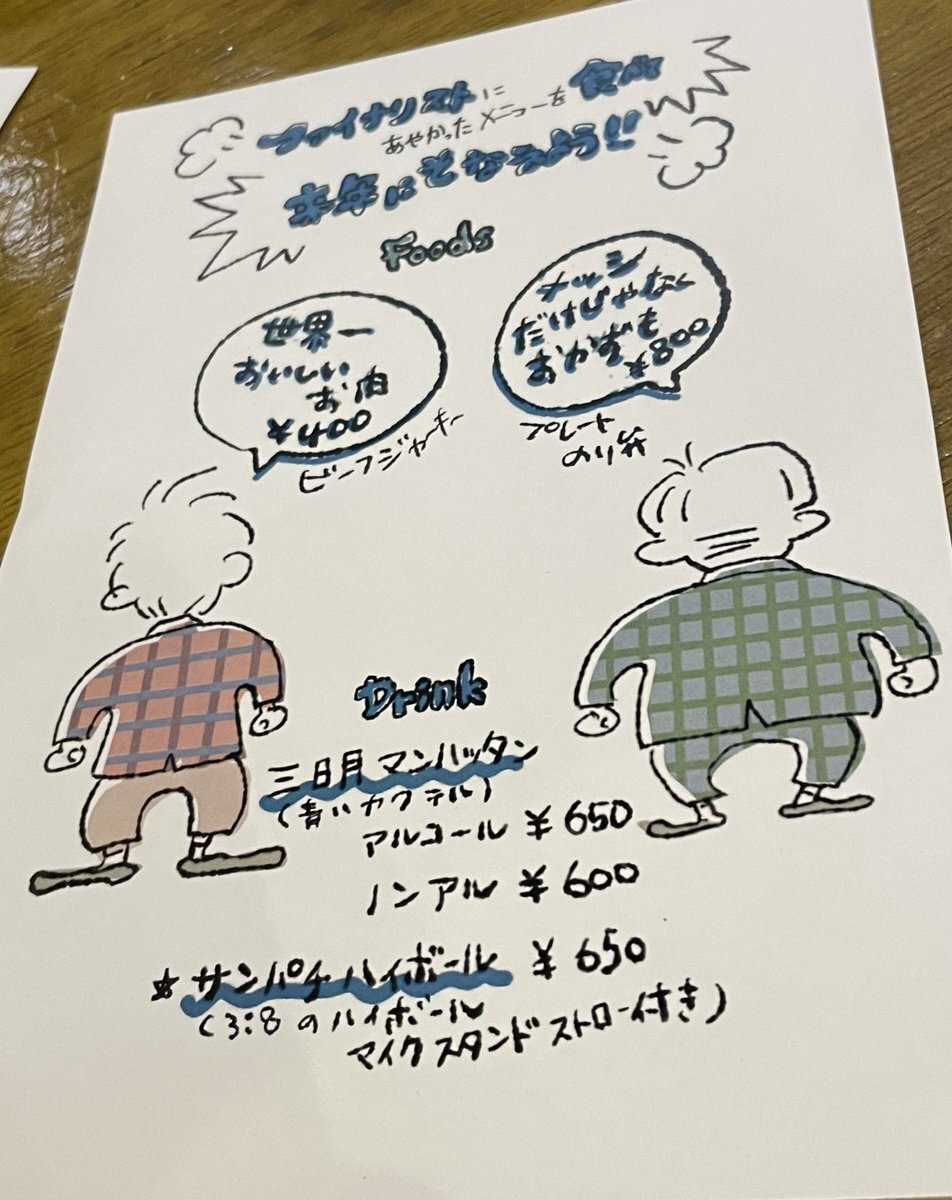 ファイナリストに
あやかったメニューを 食べ
来年にそなえよう!!
Foods
世界一
おいしい
お肉
¥400
ビーフジャーキー
メッシ
だけじゃなく
おかずも
¥800
プレート
のり弁
Drink
三日月マンハッタン
(青いカクテル)
アルコール ¥650
ノンアル ¥600
☆サンパチハイボール ¥650
(3:8のハイボール
マイクスタンドストロー付き)